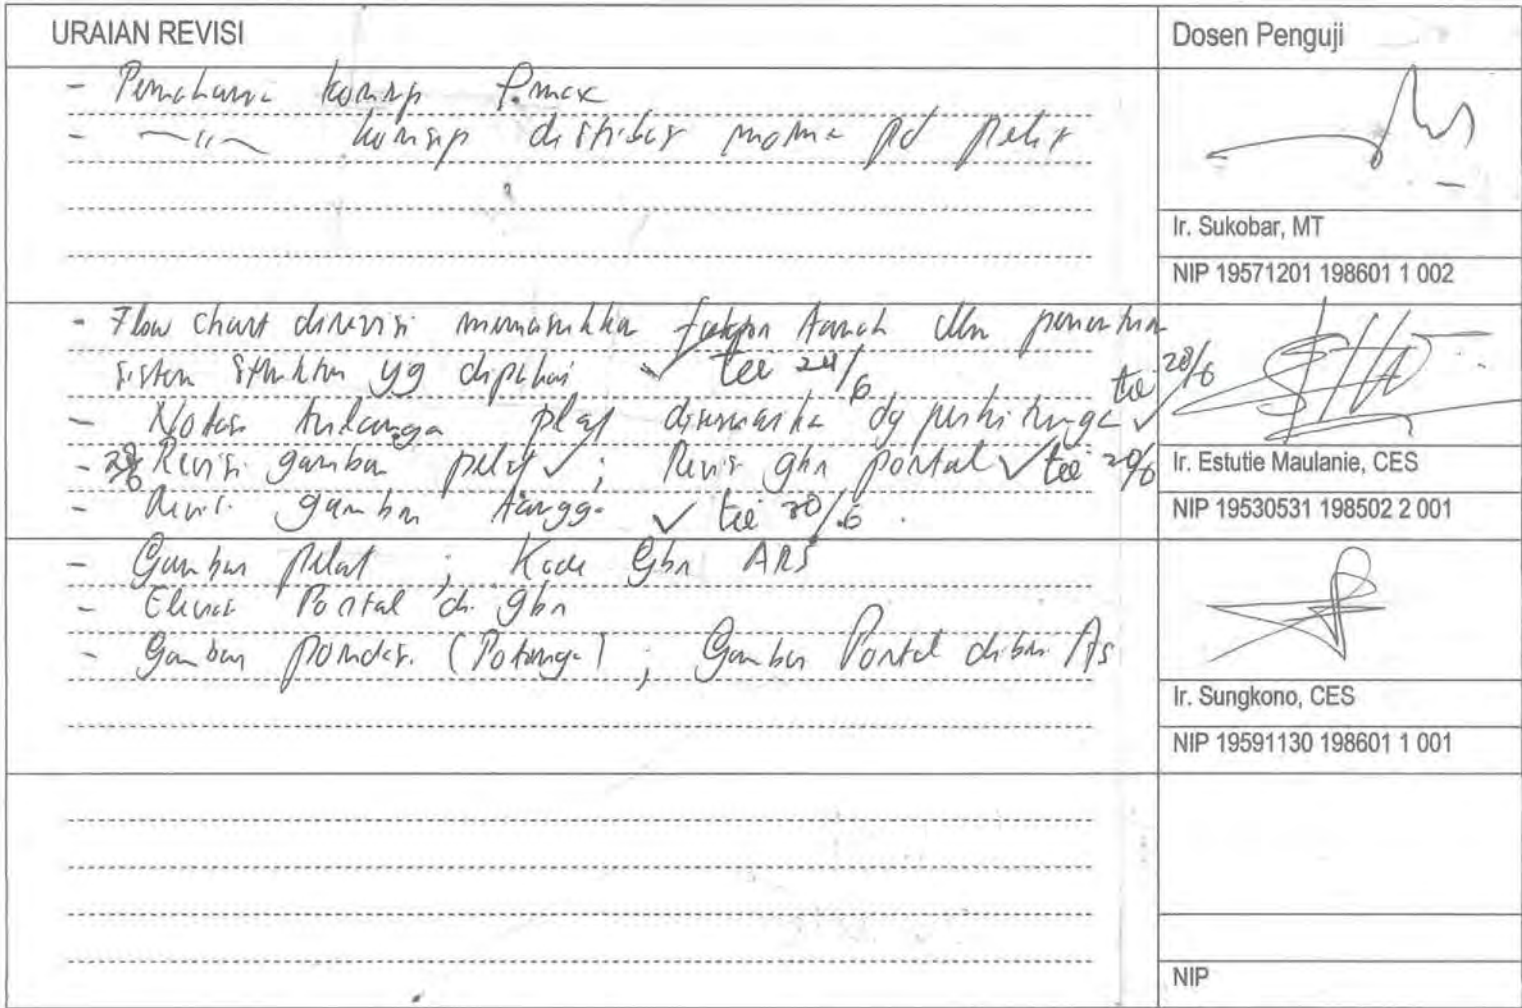 URAIAN REVISI
Dosen Penguji
- Pemahama konsep Pmax
- —"— konsep distribusi momen pd pelat
Ir. Sukobar, MT
NIP 19571201 198601 1 002
- Flow chart direvisi memasukkan faktor tanah dlm penentuan
sistem struktur yg dipakai ✓ 24/6
- Notasi tulangan plat disesuaika dg perhitunga ✓ 28/6
- 28/6 Revisi gambar pelat ✓ ; Revisi gbr portal ✓ 20/6
- Revisi gambar tangga ✓ 20/6.
Ir. Estutie Maulanie, CES
NIP 19530531 198502 2 001
- Gambar pelat ; Kode Gbr ARS
- Elevasi Portal di gbr
- Gambar pondasi (Potonga) ; Gambar Portal diberi As
Ir. Sungkono, CES
NIP 19591130 198601 1 001
NIP